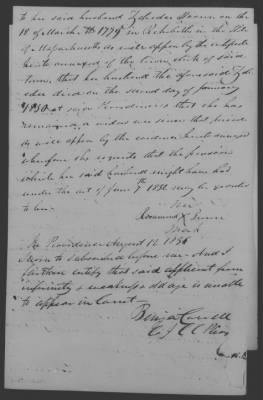 to her said husband on the
18 of March 1779 in Rehoboth in the State
of Massachusetts as will appear by the certificate
hereto annexed of the town clerk of said
town, that her husband the aforesaid
died on the second day of January
1830 at said Providence that she has
remained a widow ever since that period
as will appear by the evidence hereto annexed
wherefore she requests that the pension
which her said husband might have had
under the act of June 7th 1832 may be granted
to her.
her
Rosamond X
mark
Providence August 12, 1836
Sworn to & subscribed before me. And I
further certify that said applicant from
infirmity & weakness & old age is unable
to appear in Court.